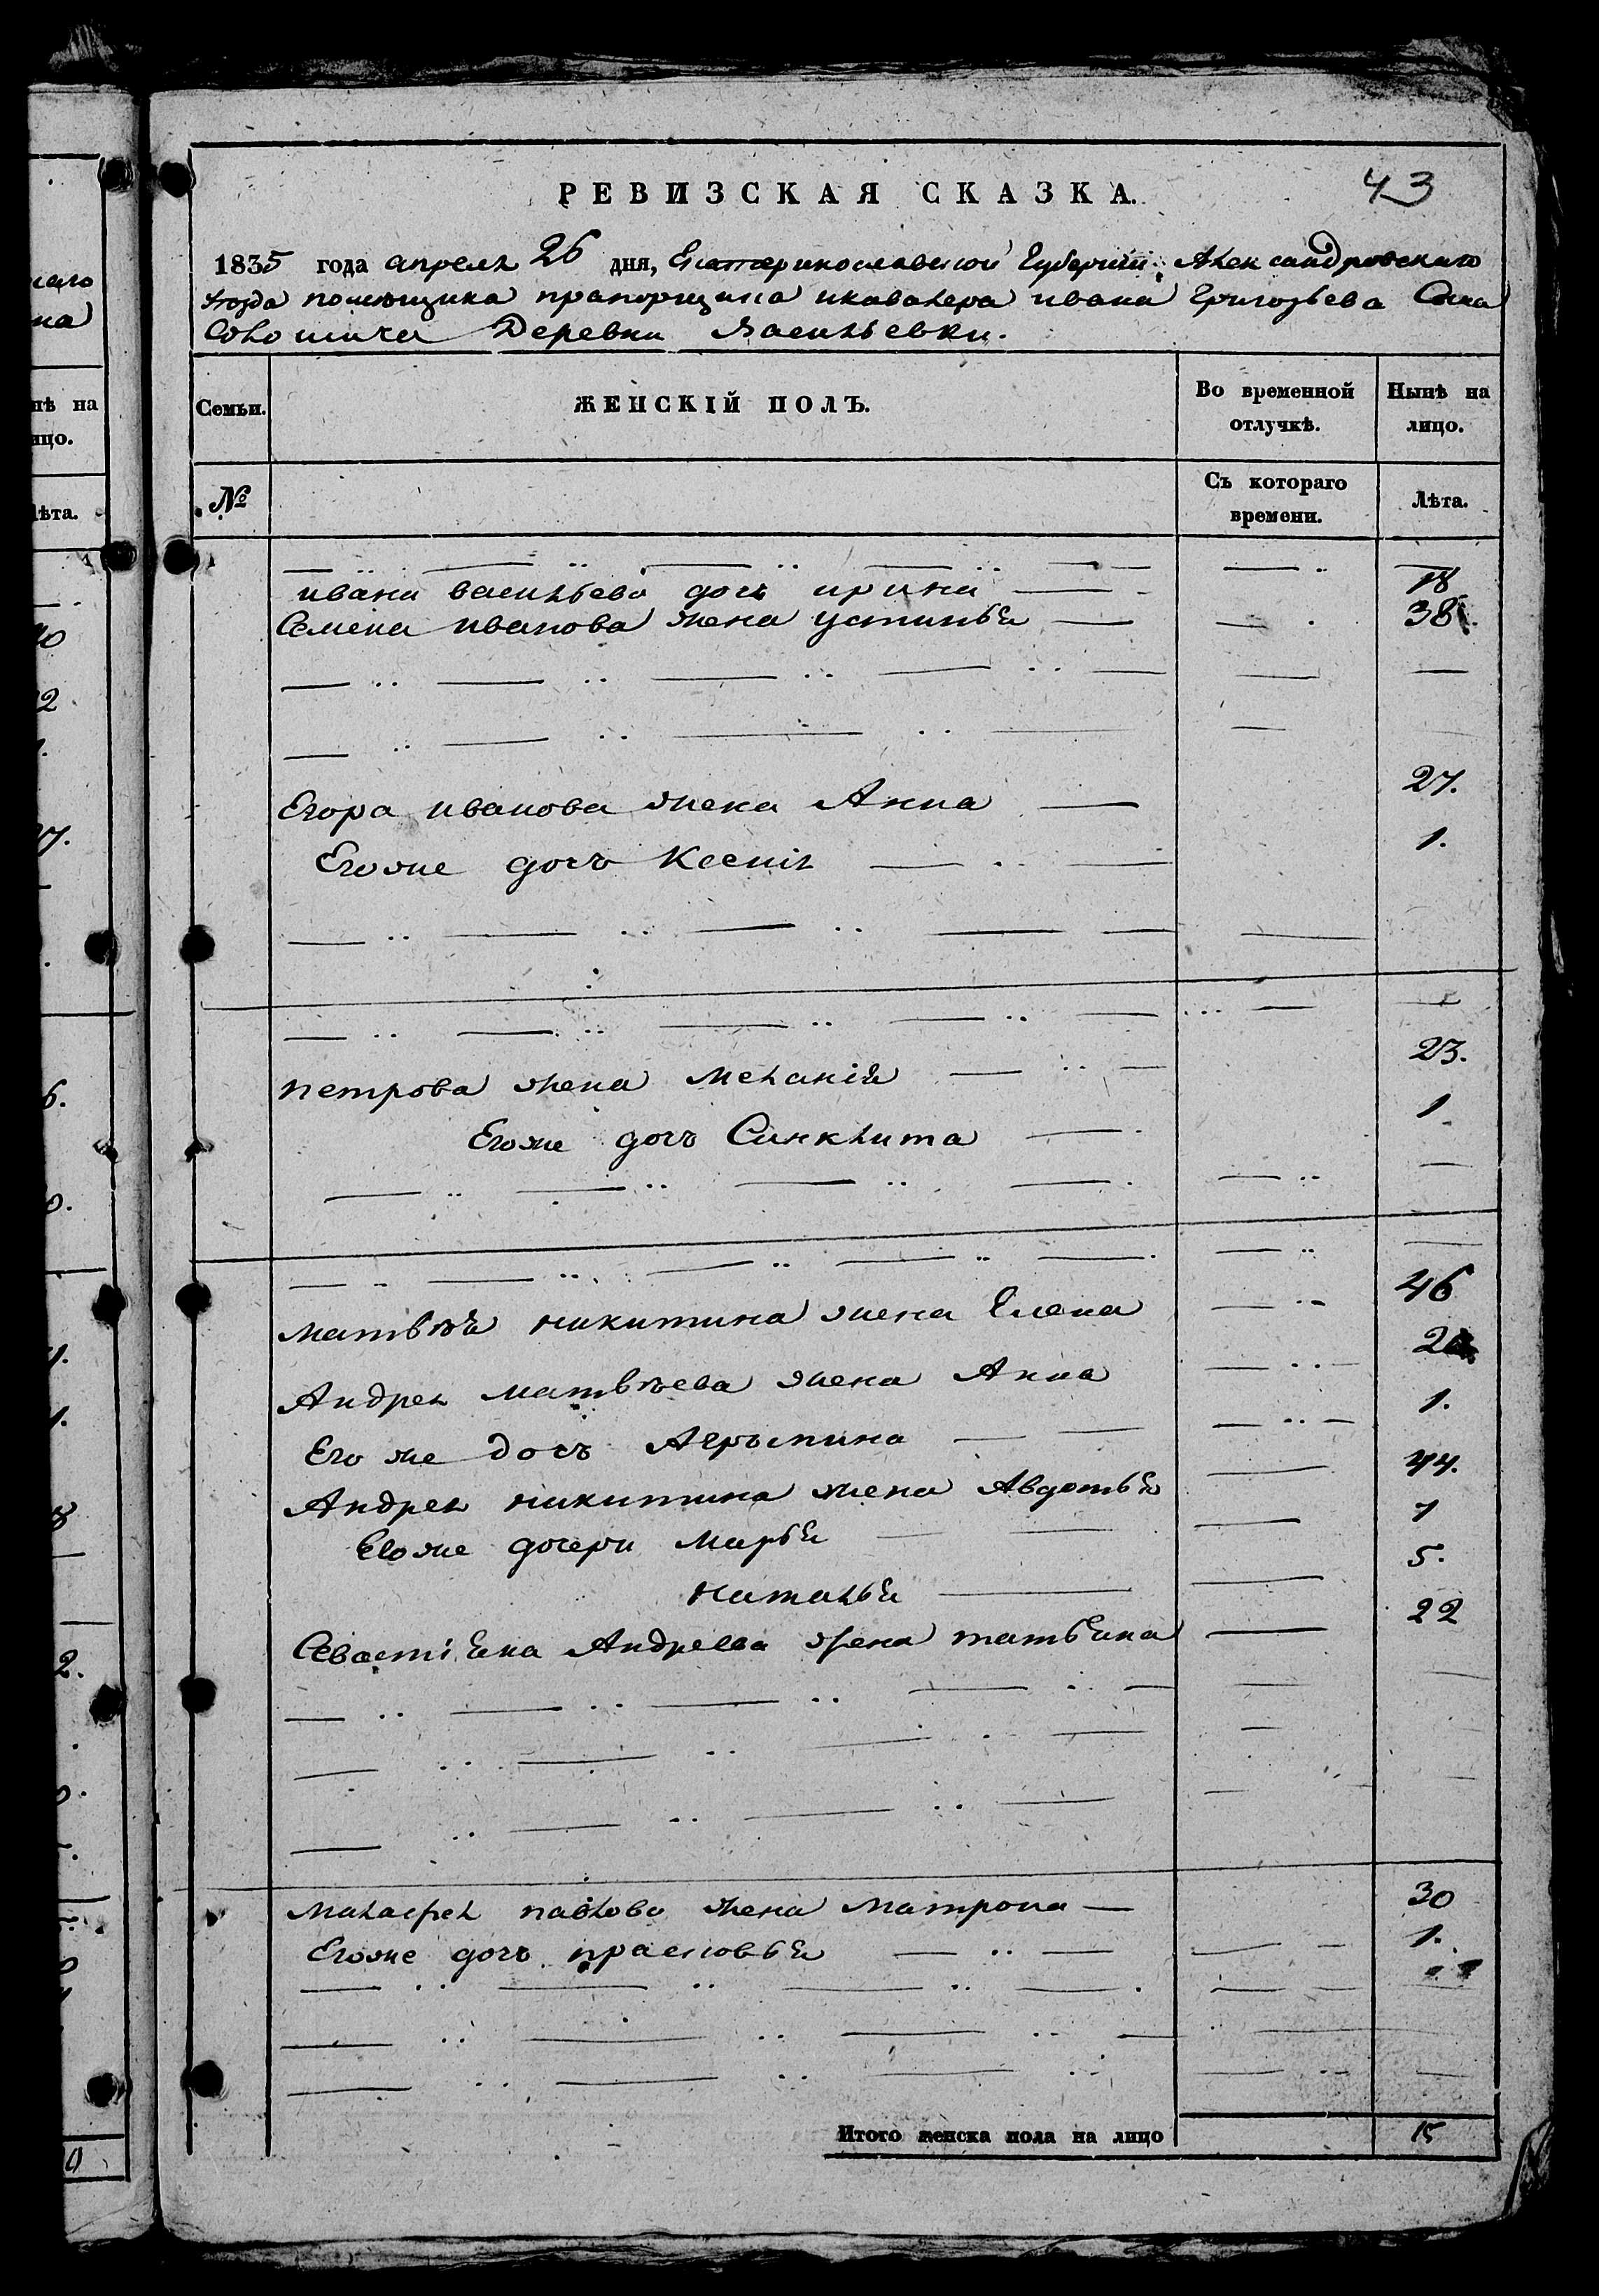 43
РЕВИЗСКАЯ СКАЗКА.
1835 года апреля 26 дня, Екатеринославской Губернии Александровскаго
уезда помещика прапорщика и кавалера ивана Григорьева Сына
Деревни Васильевки.
Семьи. ЖЕНСКІЙ ПОЛЪ. Во временной отлучкѣ. Нынѣ на лицо.
№ Съ котораго времени. Лѣта.
ивана васильева дочь ирина 18
Семена иванова жена устинья 38
Егора иванова жена Анна 27.
Егоже дочь Ксенія 1.
петрова жена Меланія 23.
Егоже дочь Синклита 1
матвѣя никитина жена Елена 46
Андрея матвѣева жена Анна
Его же дочь Агрыпина 1.
Андрея никитина жена Авдотья 44.
Егоже дочери Марья 7
наталья 5.
Севастіяна Андреева жена татьяна 22
Малафея павлова жена Матрона 30
Егоже дочь прасковья 1.
Итого женска пола на лицо 15